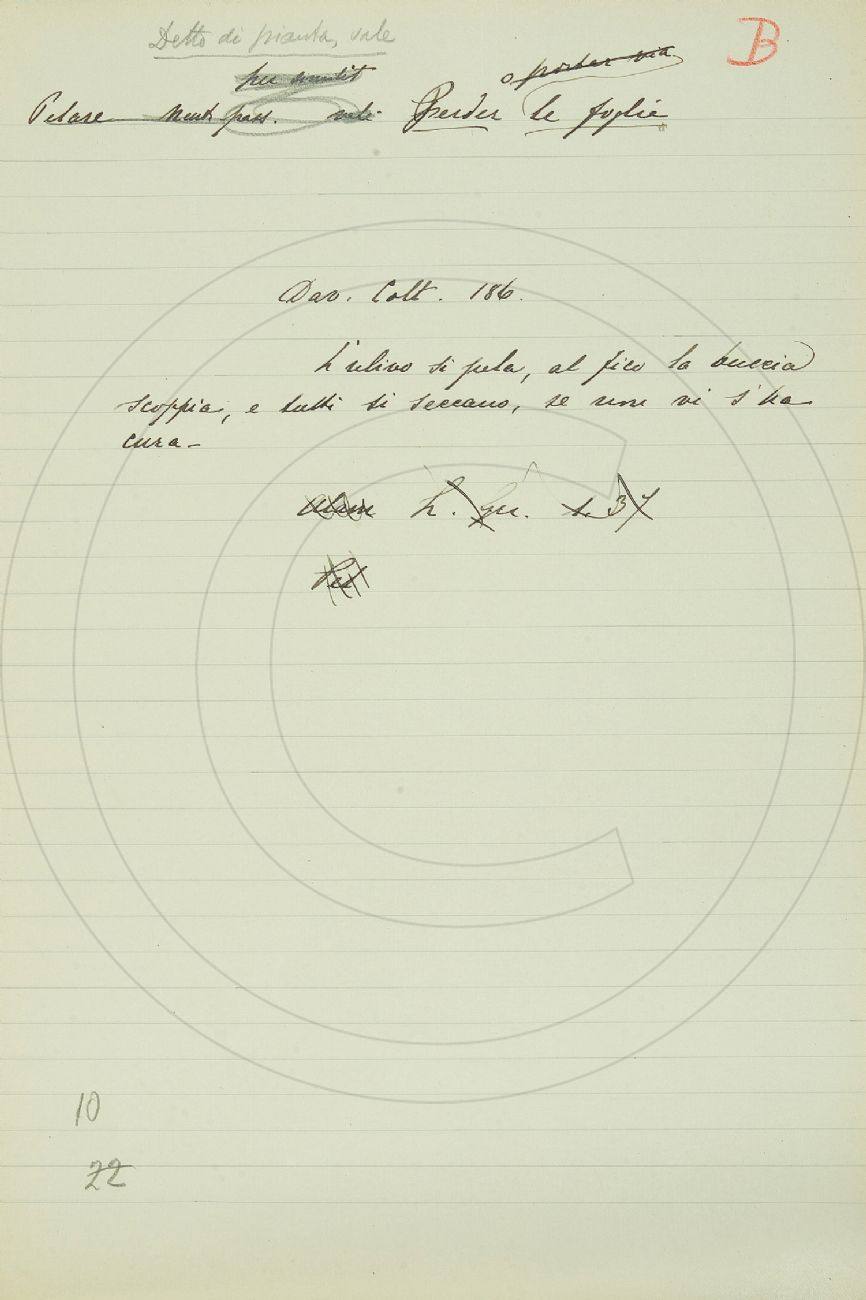 Detto di pianta, vale
B
per similit
o portar via
Pelare Neutr. pass. vale Perder le foglie
Dav. Colt. 186.
L'ulivo si pela, al fico la buccia
scoppia, e tutti si seccano, se non vi s'ha
cura-
Alam L. Gu. 1. 37
10
22